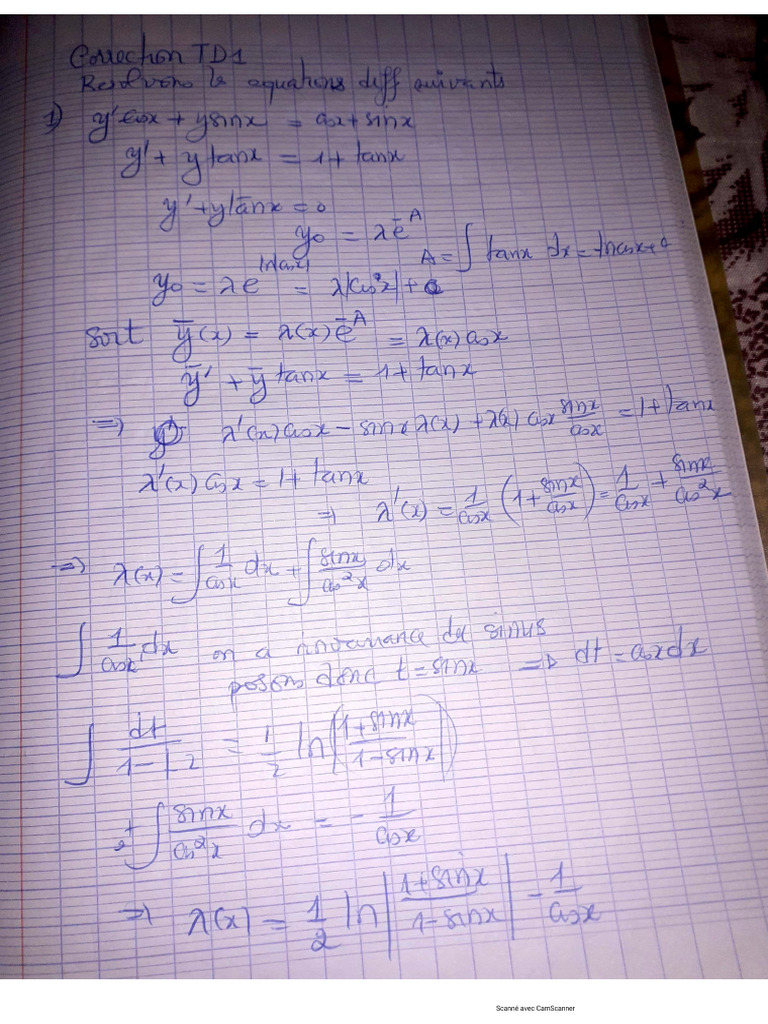 Correction TD1
Resolvons les equations diff suivants
1) y'cosx + ysinx = cosx + sinx
y' + y tanx = 1 + tanx
y' + y tanx = 0
y₀ = λe^-A
A = ∫ tanx dx = -ln cosx +
y₀ = λe^ln|cosx| = λ|cosx| +
Soit ȳ(x) = λ(x)e^-A = λ(x)cosx
ȳ' + ȳ tanx = 1 + tanx
⇒ λ'(x)cosx - sinx λ(x) + λ(x) cosx sinx/cosx = 1 + tanx
λ'(x) cosx = 1 + tanx
⇒ λ'(x) = 1/cosx (1 + sinx/cosx) = 1/cosx + sinx/cos²x
⇒ λ(x) = ∫ 1/cosx dx + ∫ sinx/cos²x dx
∫ 1/cosx dx on a invariance du sinus
posons donc t = sinx ⇒ dt = cosxdx
∫ dt/1-t² = 1/2 ln(1+sinx/1-sinx)
∫ sinx/cos²x dx = - 1/cosx
⇒ λ(x) = 1/2 ln|1+sinx/1-sinx| - 1/cosx
Scanné avec CamScanner